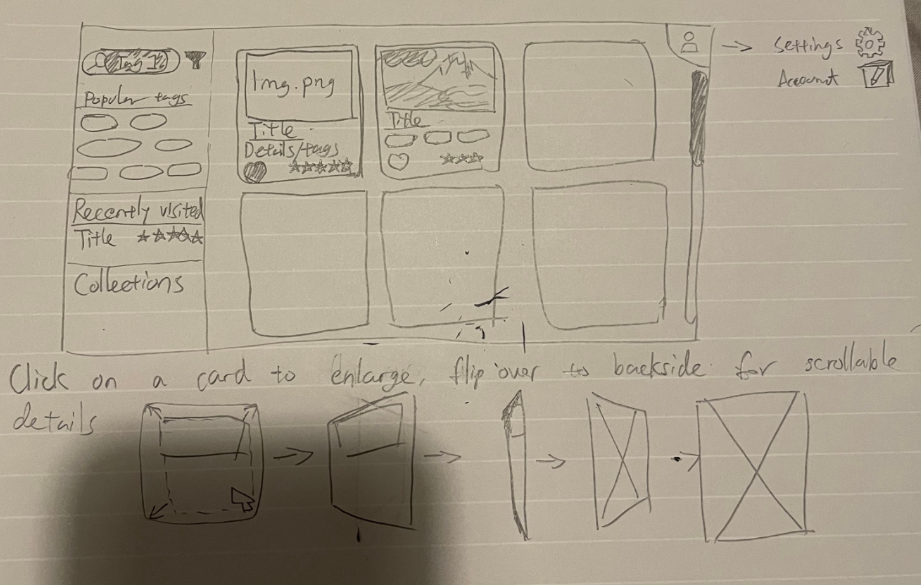 Popular tags
Recently visited
Title
Collections
Img.png
Title
Details/tags
Title
Settings
Account
Click on a card to enlarge, flip over to backside for scrollable
details